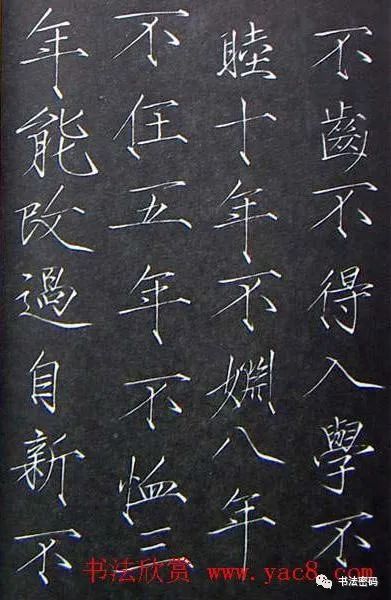 不齒不得入學不
睦十年不婣八年
不任五年不恤三
年能改過自新不
书法欣赏 www.yac8.com
书法密码